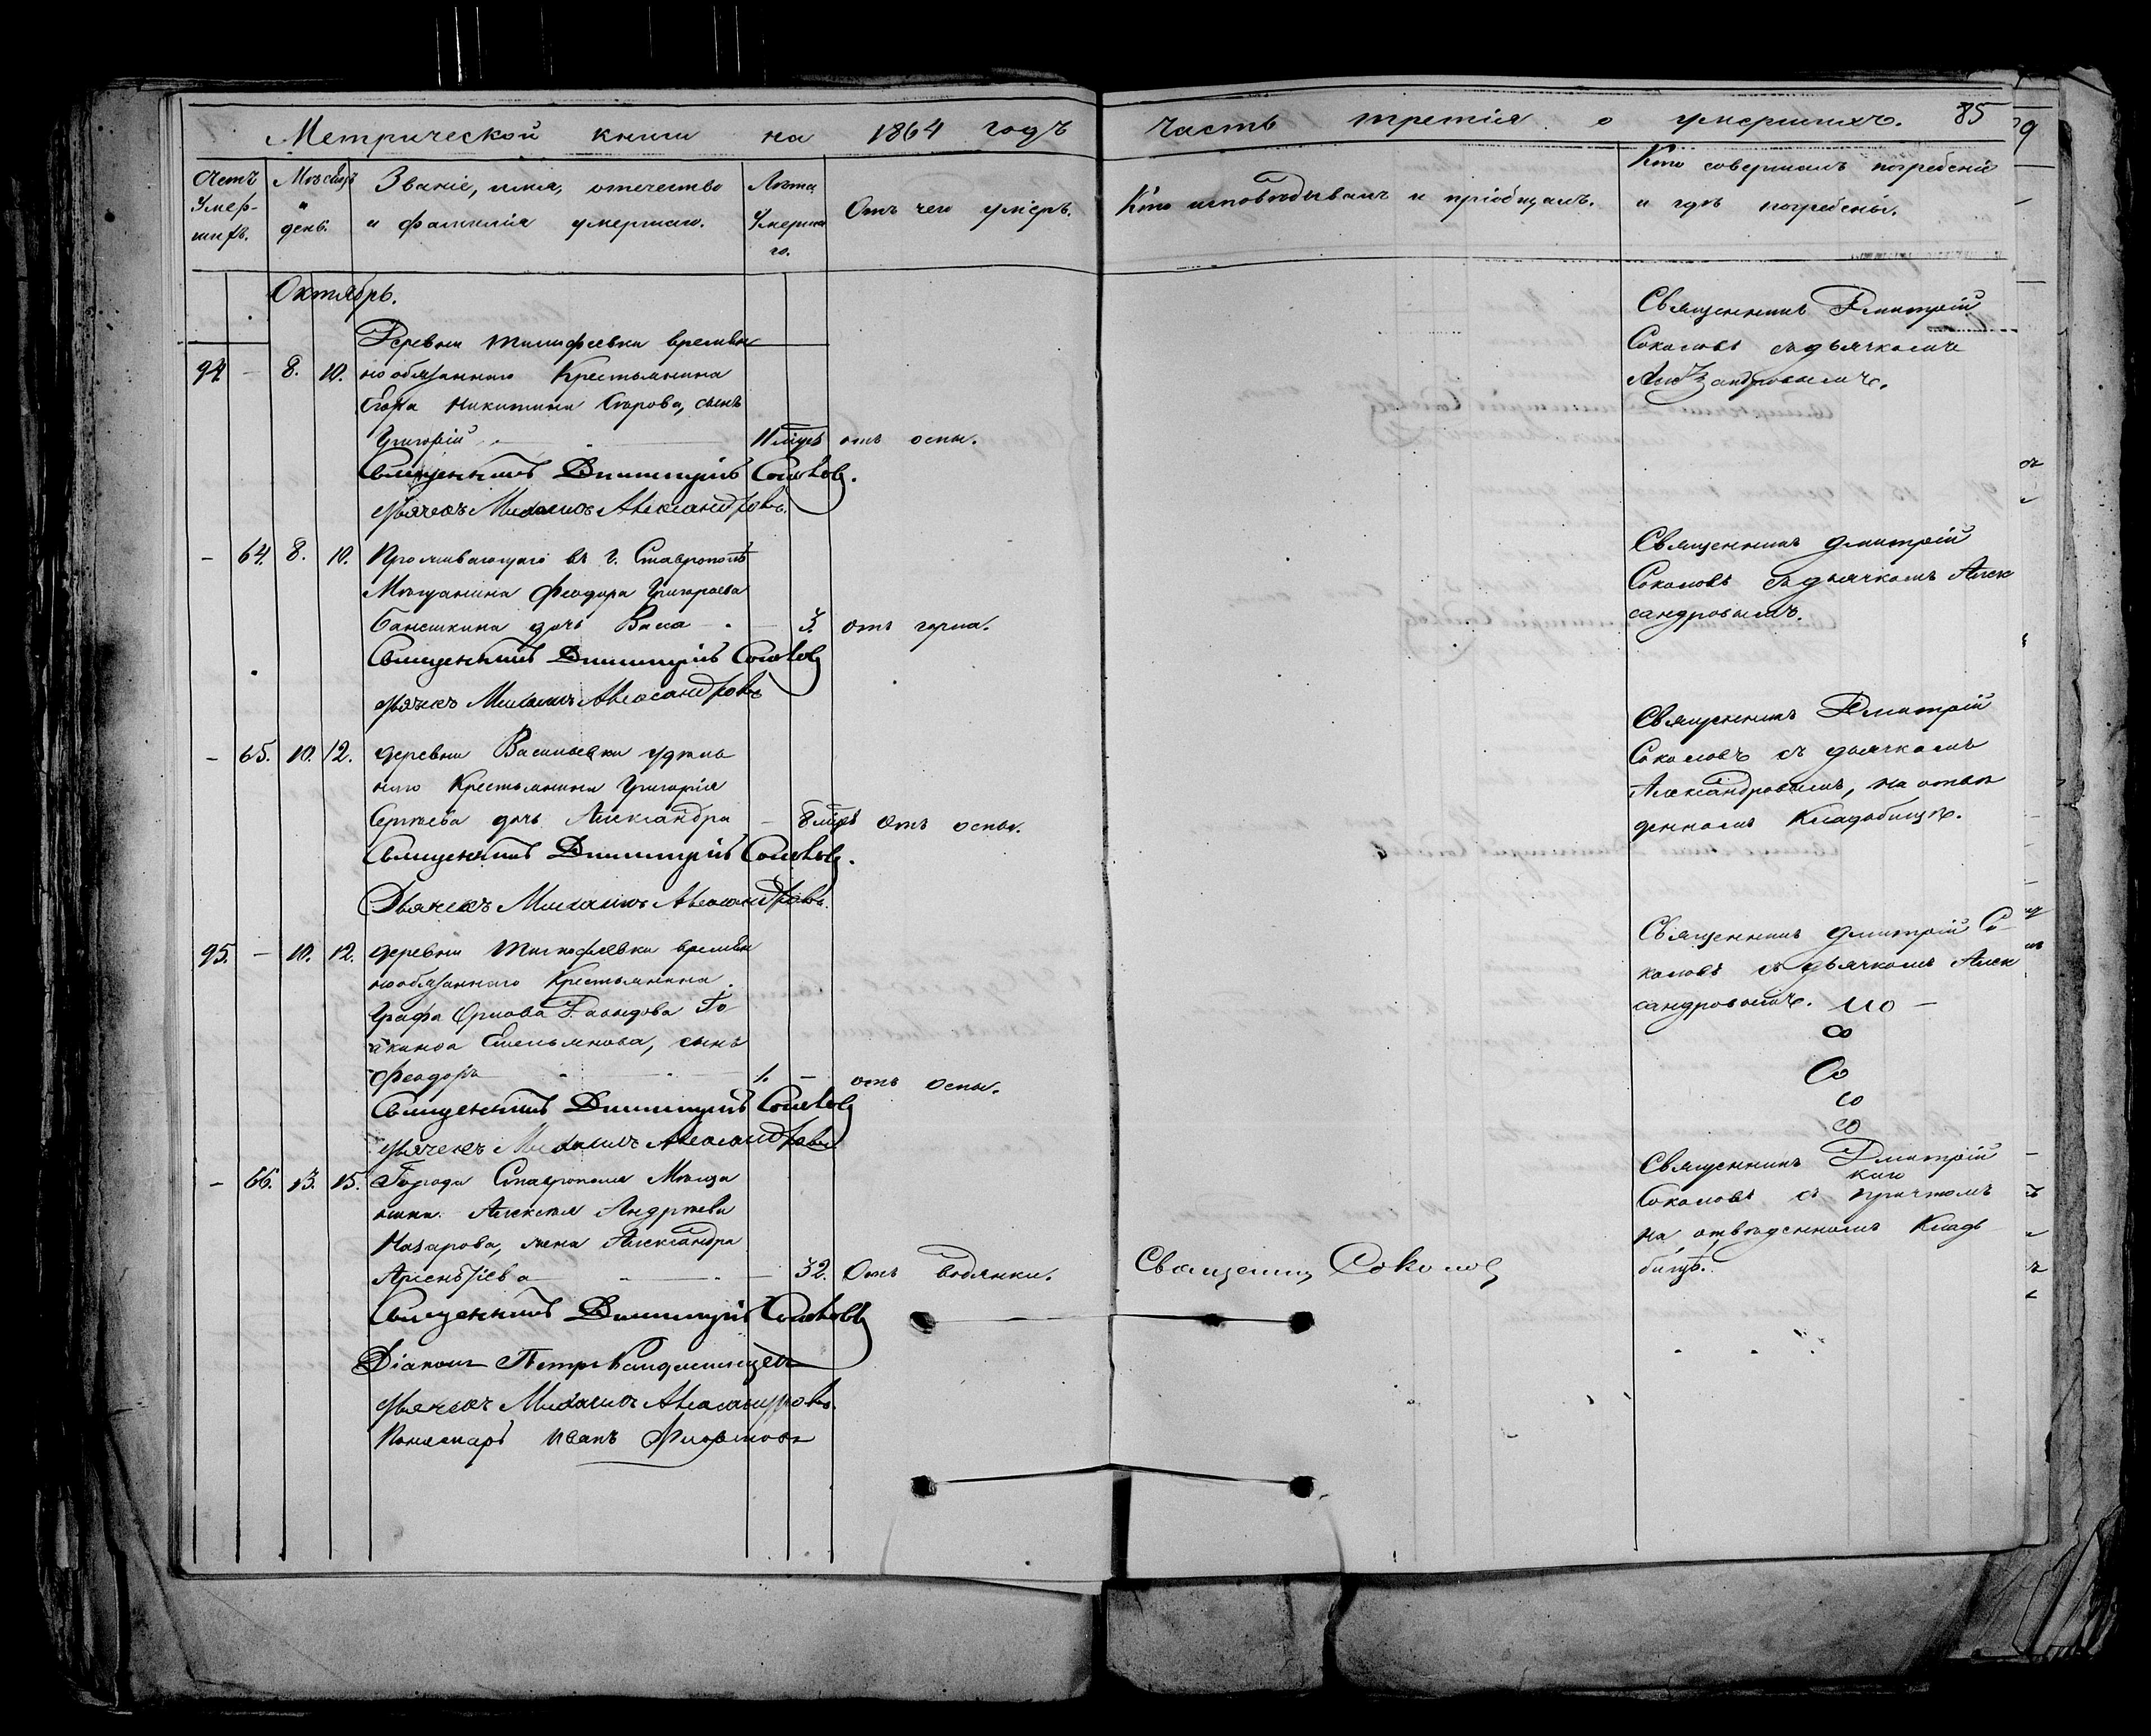 Метрической книги на 1864 годъ
часть третія о умершихъ. 85
Счетъ умер-шихъ.
Мѣсяцъ и день.
Званіе, имя, отечество и фамилія умершаго.
Лѣта умершаго.
Отъ чего умеръ.
Кто исповѣдывалъ и пріобщалъ.
Кто совершалъ погребеніе и гдѣ погребены.
Октябрь.
94 - 8. 10.
Деревни Тимофеевки времен
нообязаннаго Крестьянина
Егора Никитина сынъ
Григорій 11 мѣсц отъ оспы.
Священникъ Димитрій Соколовъ.
Дьячекъ Михаилъ Александровъ.
Священникъ Дмитрій
Соколовъ съ дьячкомъ
Александровымъ.
- 64. 8. 10.
Проживающаго въ г. Ставрополѣ
Мѣщанина Феодора Григорьева
дочь Васса 3. отъ горла.
Священникъ Димитрій Соколовъ
Дьячекъ Михаилъ Александровъ
Священникъ Дмитрій
Соколовъ съ дьячкомъ Алек
сандровымъ.
- 65. 10. 12.
деревни Васильевки удѣль
наго Крестьянина Григорія
Сергѣева дочь Александра - 8 мѣсц отъ оспы.
Священникъ Димитрій Соколовъ.
Дьячекъ Михаилъ Александровъ.
Священникъ Дмитрій
Соколовъ съ дьячкомъ
Александровымъ, на отве
денномъ Кладбищѣ.
95. - 10. 12.
деревни Тимофеевки времен
нообязаннаго Крестьянина
Графа Орлова Давыдова Іо
акима Емельянова, сынъ
Феодоръ 1. - отъ оспы.
Священникъ Димитрій Соколовъ
Дьячекъ Михаилъ Александровъ
Священникъ Дмитрій Со
коловъ съ дьячкомъ Алек
сандровымъ.
- 66. 13. 15.
Города Ставрополя Мѣща
нина Алексѣя Андреева
Назарова, жена Александра
Арсеньева 32. Отъ водянки.
Священникъ Соколовъ
Священникъ Димитрій Соколовъ
Діаконъ Петръ
Дьячекъ Михаилъ Александровъ.
Пономарь Иванъ
Священникъ Дмитрій
Соколовъ съ причтомъ
на отведенномъ Клад
бищѣ.